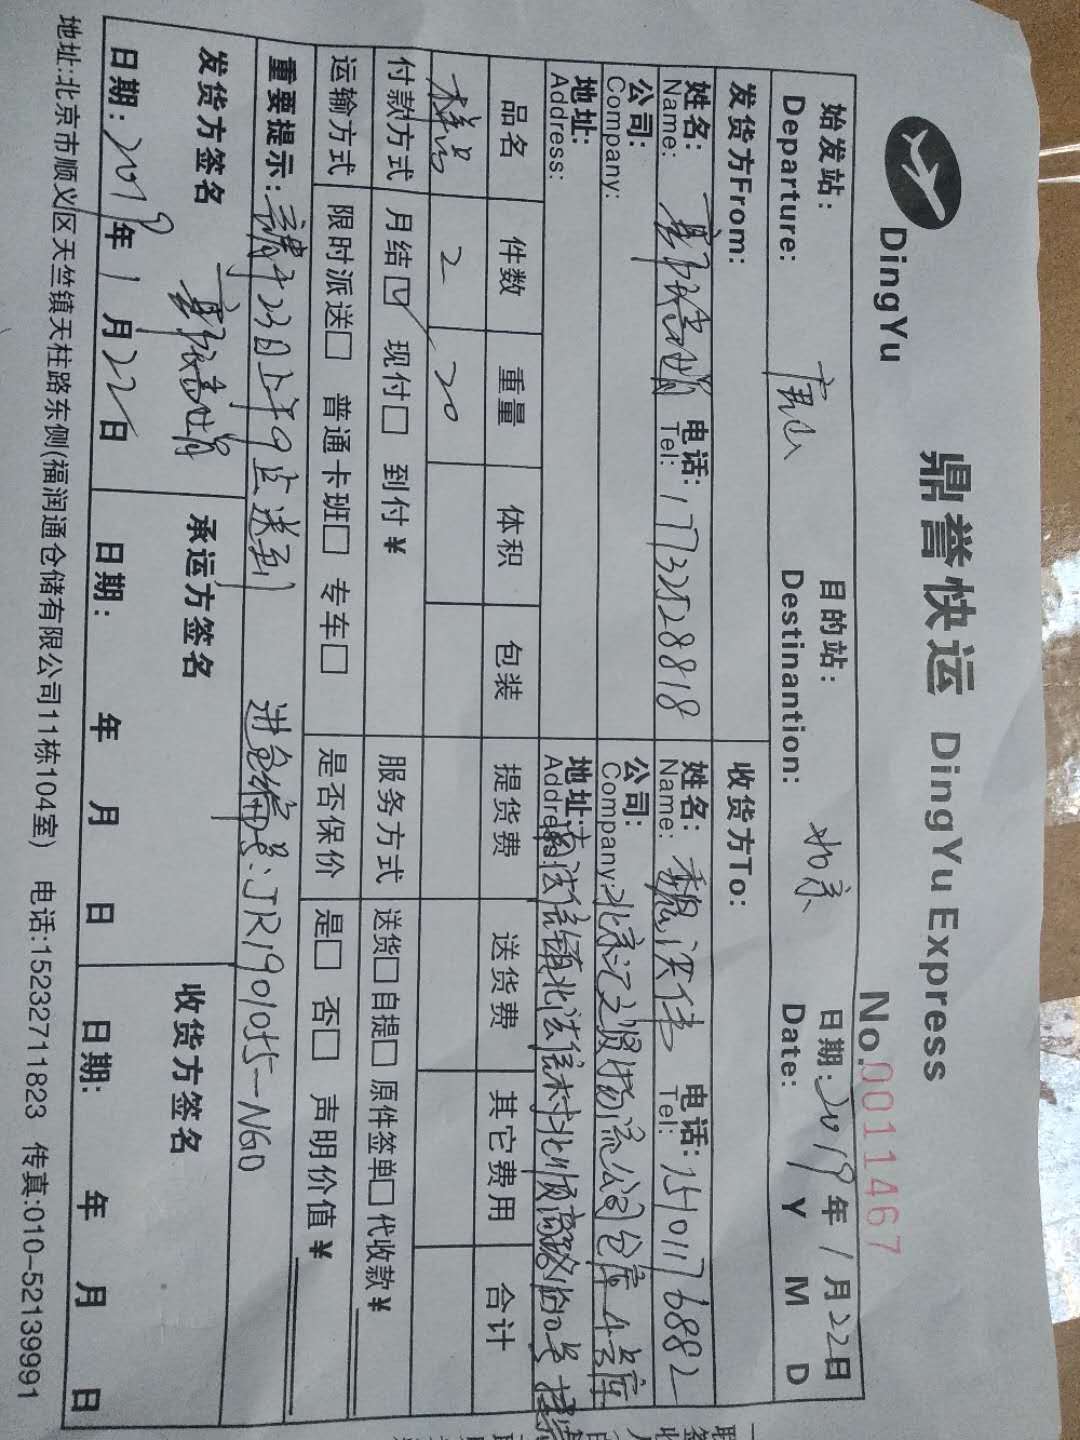 DingYu
鼎誉快运 DingYu Express
No.0011467
始发站: 唐山 目的站: 北京 日期:2019年1月22日
Departure: Destinantion: Date: Y M D
发货方From: 收货方To:
姓名: 电话:17732528818 姓名: 电话:15101176882
Name: Tel: Name: Tel:
公司: 公司: 北京汇之贤物流公司仓库4号库
Company: Company:
地址: 地址:南法信镇北法信村北顺
Address: Address:
品名 件数 重量 体积 包装 提货费 送货费 其它费用 合计
样品 2 20
付款方式 月结☑ 现付□ 到付¥ 服务方式 送货□自提□ 原件签单□代收款¥
运输方式 限时派送□ 普通卡班□ 专车□ 是否保价 是□ 否□ 声明价值¥
重要提示:请于23日上午9点送到 进仓编号:JR1901055-NGO
发货方签名 承运方签名 收货方签名
日期:2019年1月22日 日期: 年 月 日 日期: 年 月 日
地址:北京市顺义区天竺镇天柱路东侧(福润通仓储有限公司11栋104室) 电话:15232711823 传真:010-52139991